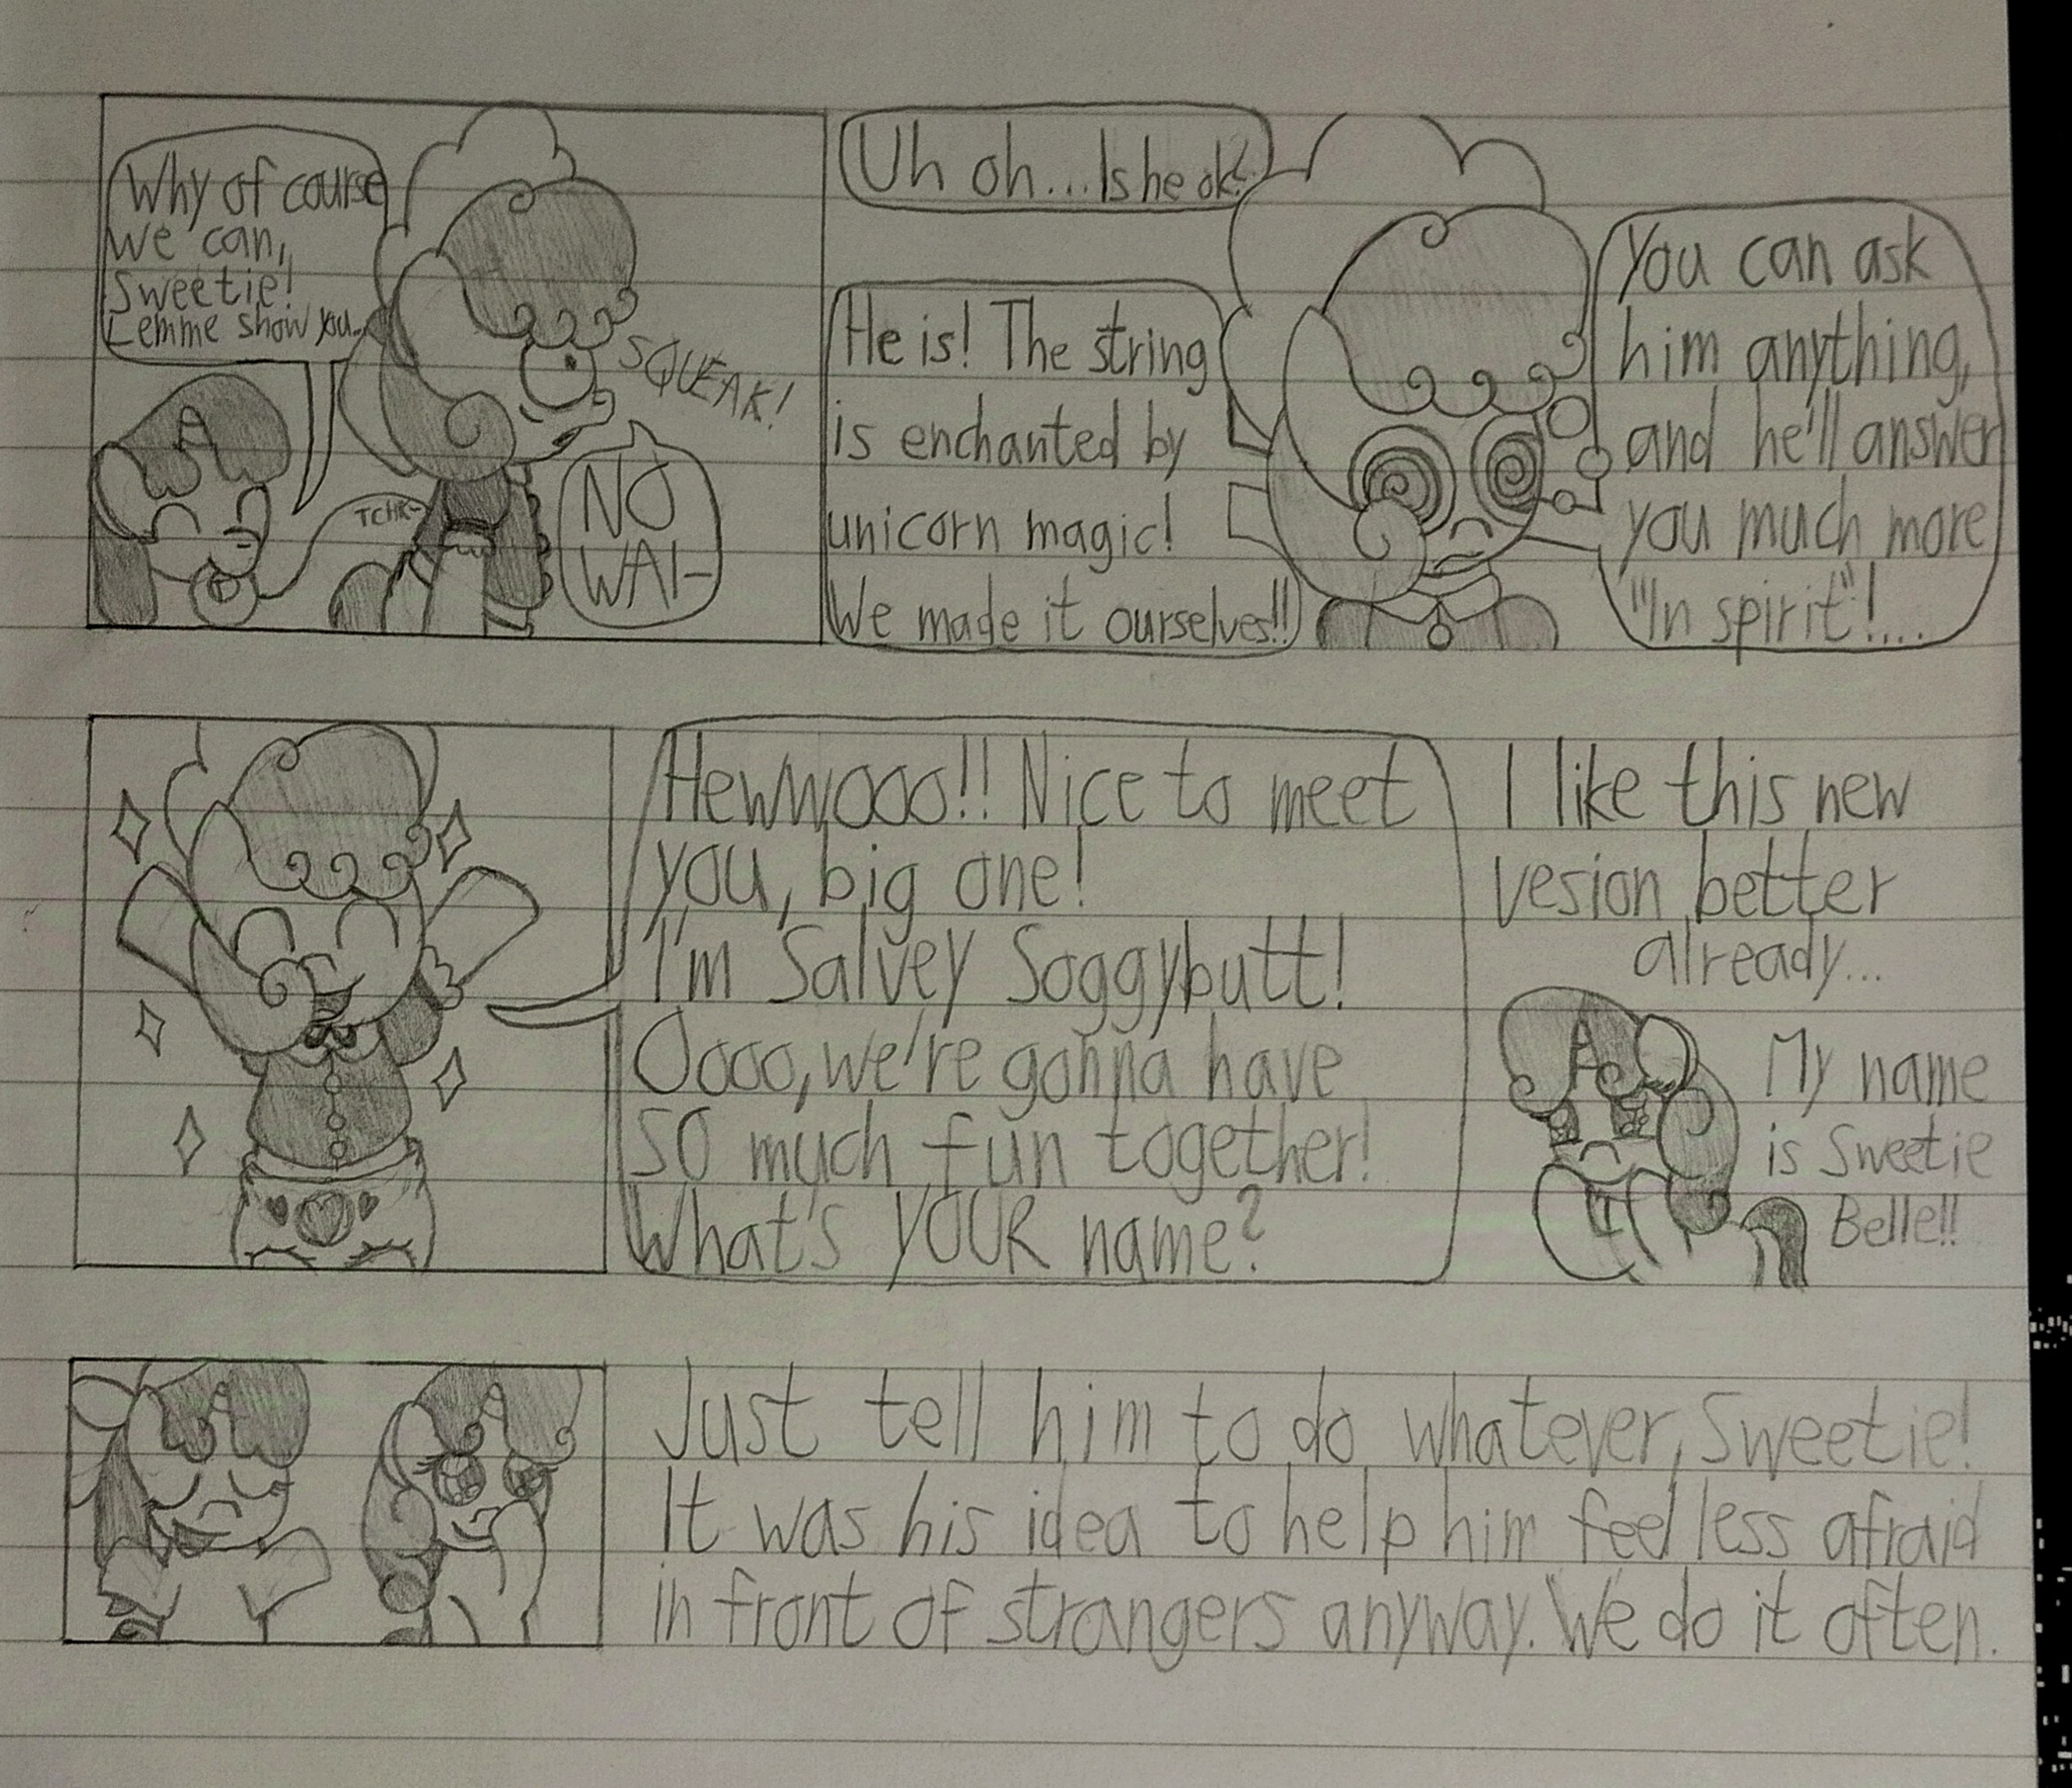 Why of course
we can,
Sweetie!
Lemme show you..
SQUEAK!
TCHK-
NO
WAI-
Uh oh... Is he ok?
He is! The string
is enchanted by
unicorn magic!
We made it ourselves!!
You can ask
him anything,
and he'll answer
you much more
"In spirit"!....
Hewwooo!! Nice to meet
you, big one!
I'm Salvey Soggybutt!
Oooo, we're gonna have
SO much fun together!
What's YOUR name?
I like this new
vesion better
already...
My name
is Sweetie
Belle!!
Just tell him to do whatever, Sweetie!
It was his idea to help him feel less afraid
in front of strangers anyway. We do it often.